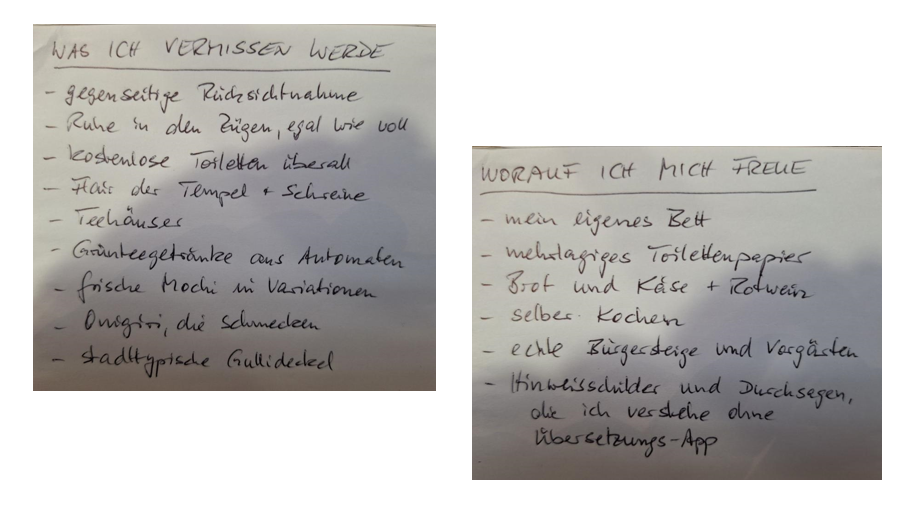 WAS ICH VERMISSEN WERDE
- gegenseitige Rücksichtnahme
- Ruhe in den Zügen, egal wie voll
- kostenlose Toiletten überall
- Flair der Tempel + Schreine
- Teehäuser
- Grünteegetränke aus Automaten
- frische Mochi in Variationen
- Onigiri, die schmecken
- stadttypische Gullideckel
WORAUF ICH MICH FREUE
- mein eigenes Bett
- mehrlagiges Toilettenpapier
- Brot und Käse + Rotwein
- selber Kochen
- echte Bürgersteige und Vorgärten
- Hinweisschilder und Durchsagen,
die ich verstehe ohne
Übersetzungs-App